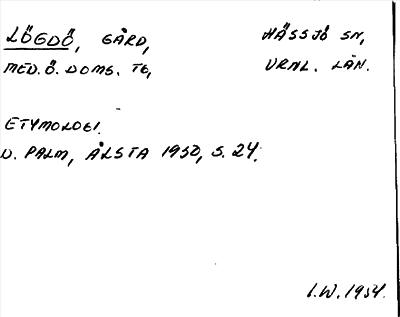 LÖGDÖ, GÅRD, HÄSSJÖ SN,
MED. Ö. DOMS. TG, VRNL. LÄN.
ETYMOLOGI.
D. PALM, ÅLSTA 1950, S. 24.
I.W. 1954.